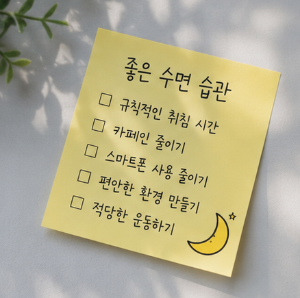 좋은 수면 습관
□ 규칙적인 취침 시간
□ 카페인 줄이기
□ 스마트폰 사용 줄이기
□ 편안한 환경 만들기
□ 적당한 운동하기